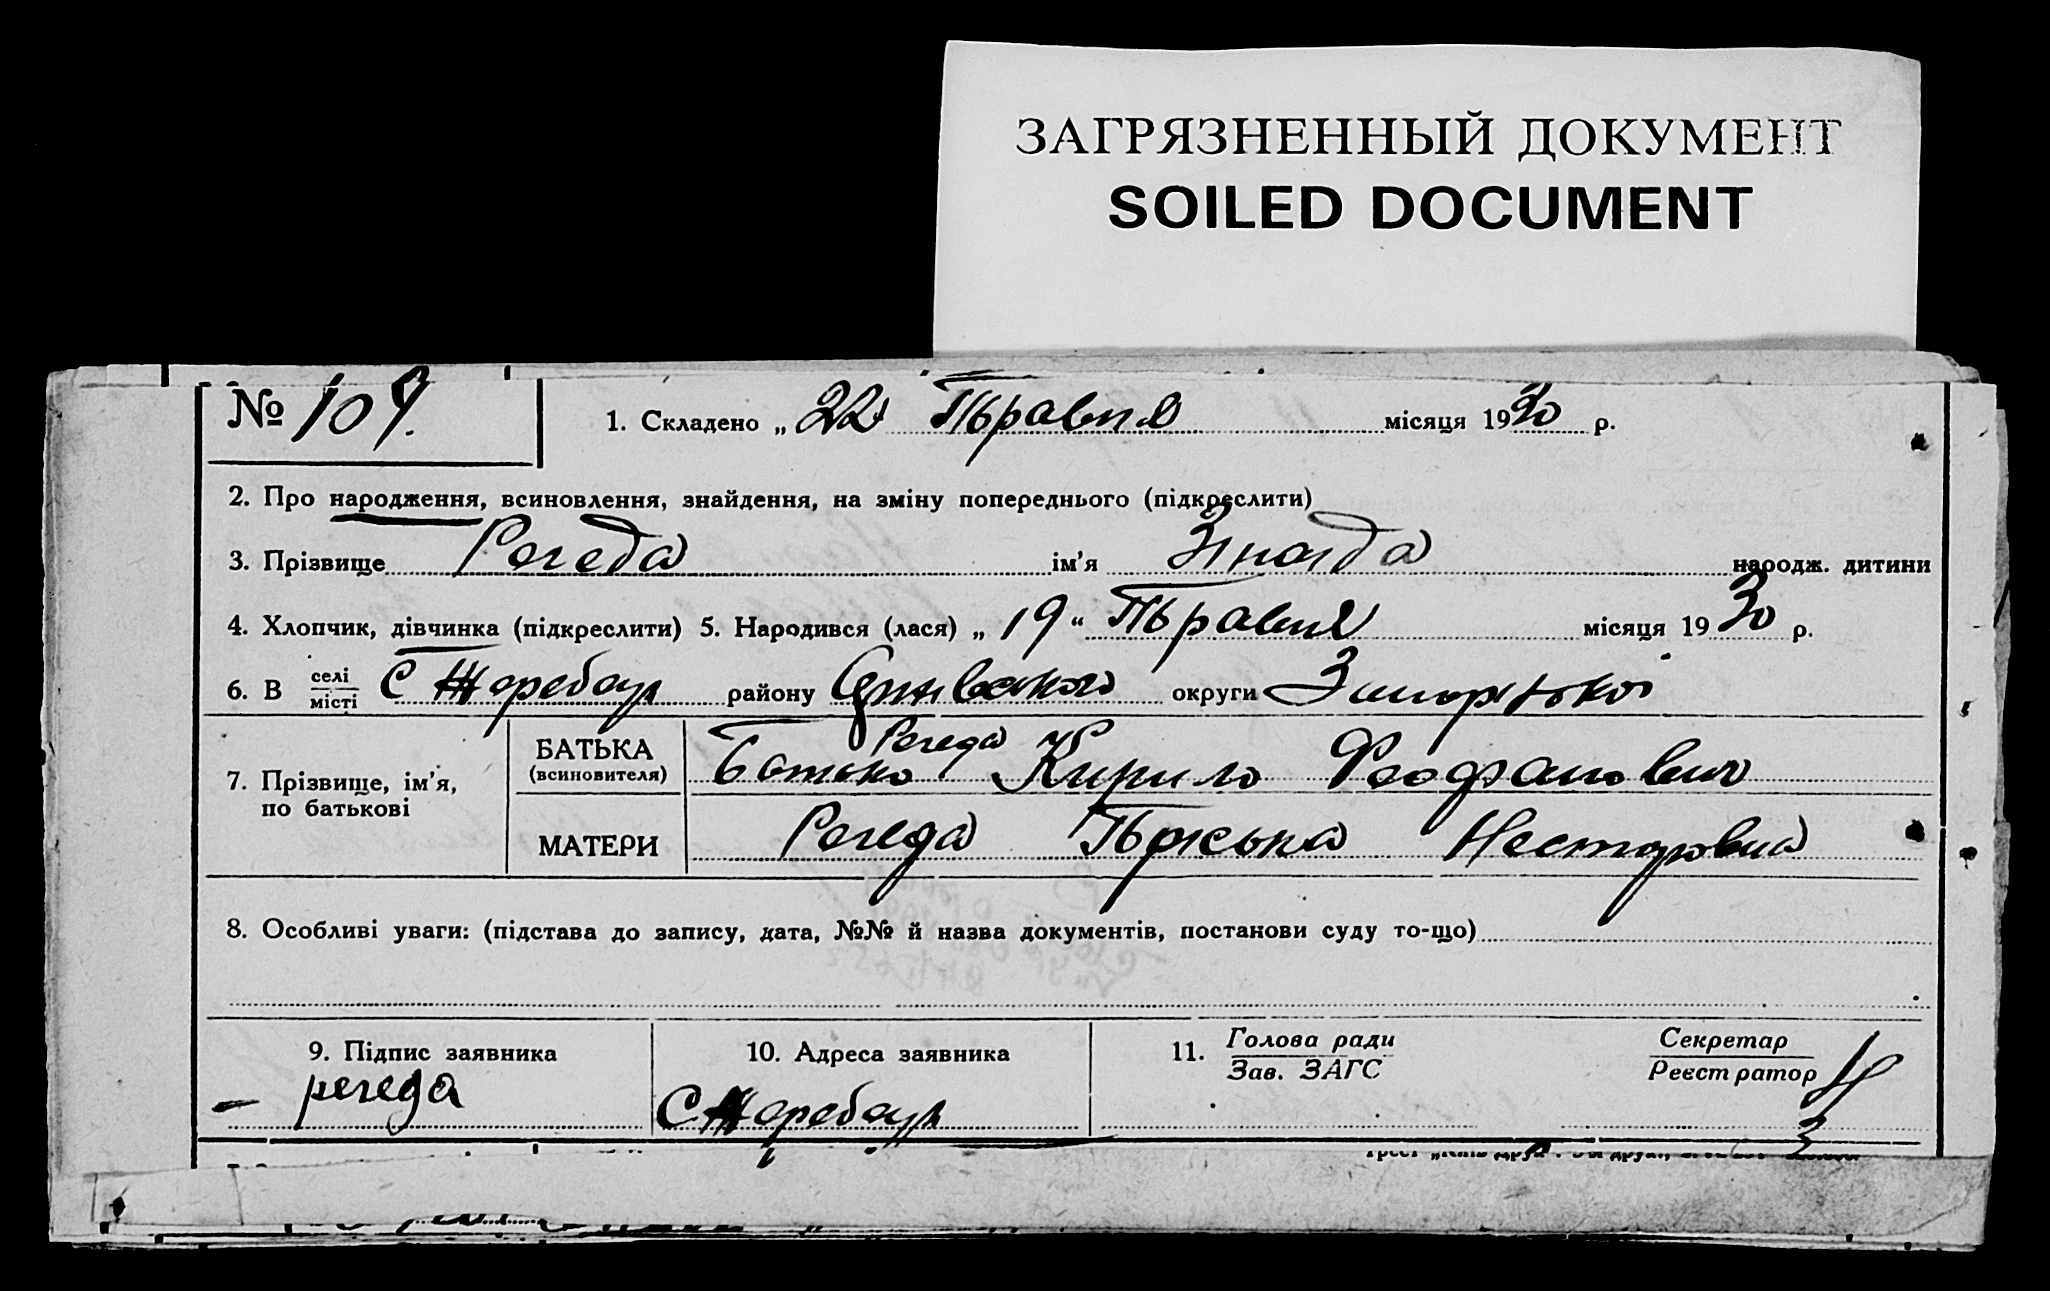 ЗАГРЯЗНЕННЫЙ ДОКУМЕНТ
SOILED DOCUMENT
№ 109. 1. Складено „ 22 Травня місяця 1930 р.
2. Про народження, всиновлення, знайдення, на зміну попереднього (підкреслити)
3. Прізвище Регеда ім'я Зінаїда народж. дитини
4. Хлопчик, дівчинка (підкреслити) 5. Народився (лася) „ 19 “ Травня місяця 1930 р.
6. В селі місті С Жеребець району округи
Регеда
7. Прізвище, ім'я, по батькові БАТЬКА (всиновителя) Батько Кирило
МАТЕРИ Регеда Несторовна
8. Особливі уваги: (підстава до запису, дата, №№ й назва документів, постанови суду то-що)
9. Підпис заявника 10. Адреса заявника 11. Голова ради Зав. ЗАГС Секретар Реєстратор
регеда С Жеребець